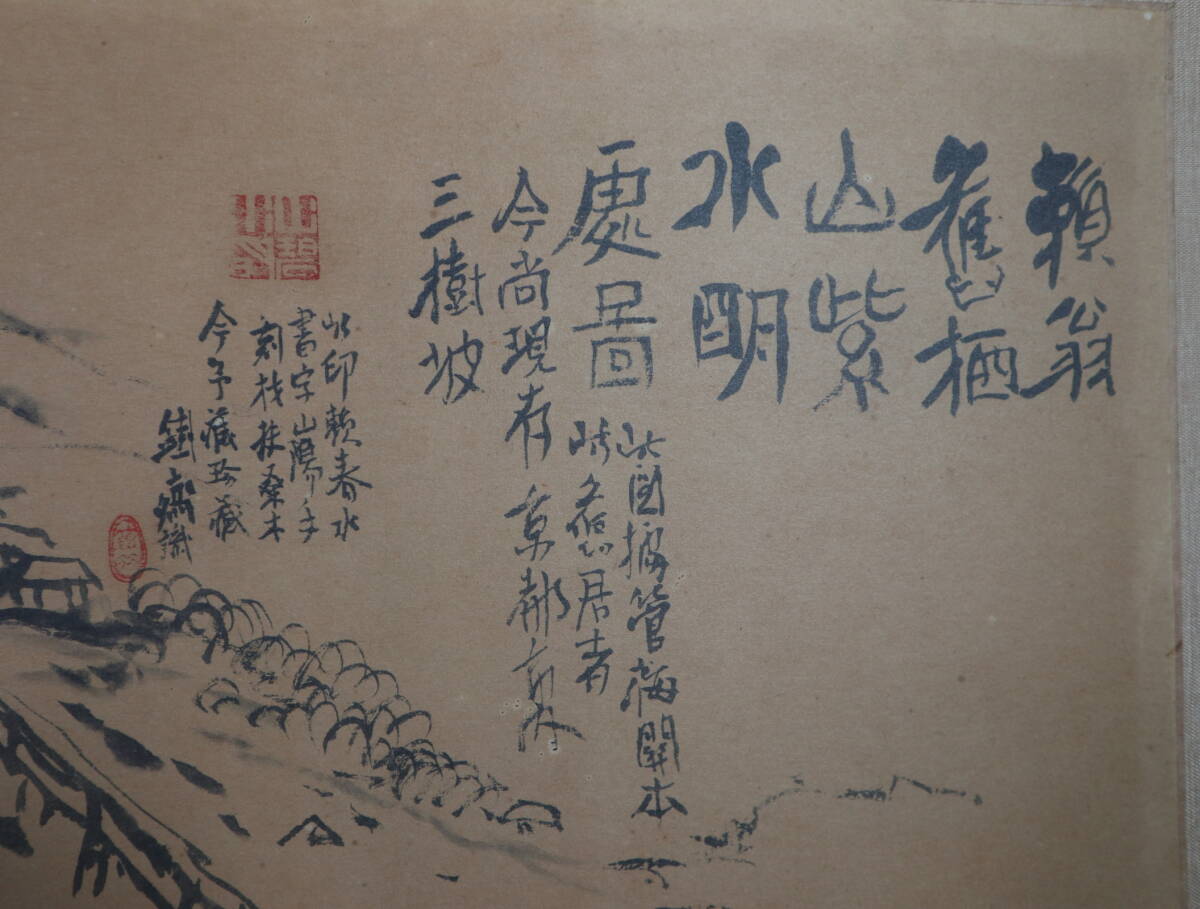 頼翁
舊栖
山紫
水明
處啚
此図據管梅關本
此名旧居者
今尚現存京都東
三樹坡
此印頼春水
書字山陽手
刻材扶桑木
今予藏珍藏
鐵齋識